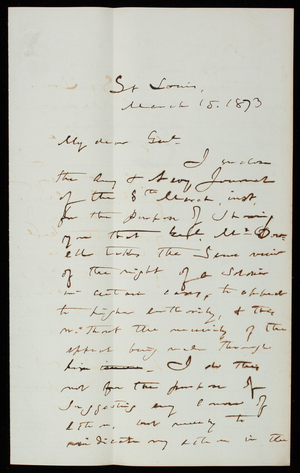 St Louis,
March 15. 1873
My dear Genl.
I enclose
the Army & Navy Journal
of the 8th March, inst.
for the purpose of showing
you that Genl. McDow-
ell takes the same view
of the right of a Soldier
in certain cases, to appeal
to higher authority, & this
without the necessity of the
appeal being made through
his I do this
not for the purpose of
suggesting any course of
action, but merely to
vindicate my action in the